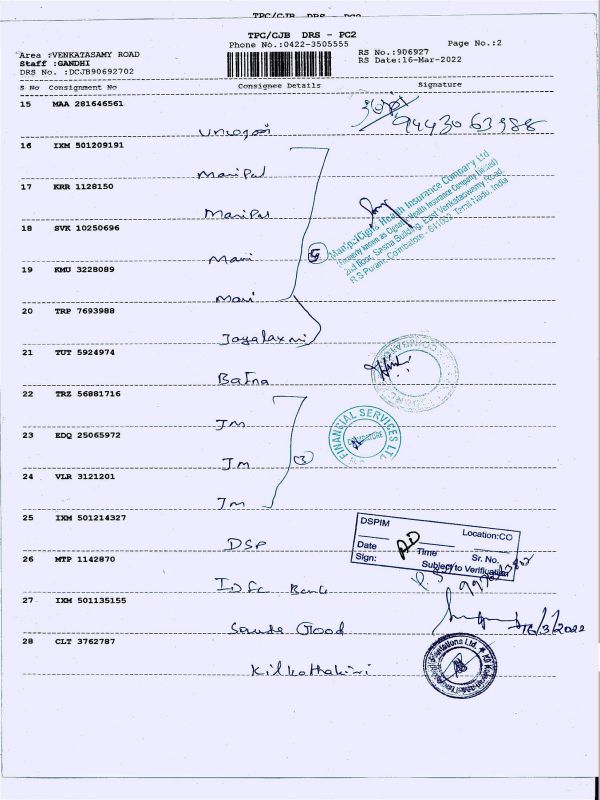 TPC/CJB DRS - PC2
TPC/CJB DRS - PC2
Phone No.:0422-3505555
Page No.:2
Area :VENKATASAMY ROAD
RS No.:906927
Staff :GANDHI
RS Date:16-Mar-2022
DRS No. :DCJB90692702
S No Consignment No Consignee Details Signature
15 MAA 281646561
9443063988
16 IXM 501209191
Manipal
17 KRR 1128150
Manipal
ManipalCigna Health Insurance Company Ltd
(Formerly known as CignaTTK Health Insurance Company Limited)
2nd floor, Sasna Building, East Venkataswamy Road,
R S Puram, Coimbatore - 641002, Tamil Nadu, India
18 SVK 10250696
Mani
5
19 KMU 3228089
Mani
20 TRP 7693988
Jayalaxmi
21 TUT 5924974
Bafna
22 TRZ 56881716
Jm
FINANCIAL SERVICES LTD
COIMBATORE
23 EDQ 25065972
Jm
3
24 VLR 3121201
Jm
25 IXM 501214327
DSP
DSPIM
Location:CO
Date
Time
Sr. No.
Sign:
Subject to Verification
26 MTP 1142870
IDFC Bank
27 IXM 501135155
16/3/2022
28 CLT 3762787
Kilkothakiri